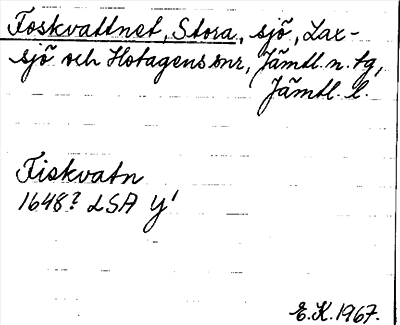 Foskvattnet, Stora, sjö, Lax-
sjö och Hotagens snr, Jämtl. n. tg,
Jämtl. l.
Fiskvatn
1648? LSA Y'
E.K. 1967.